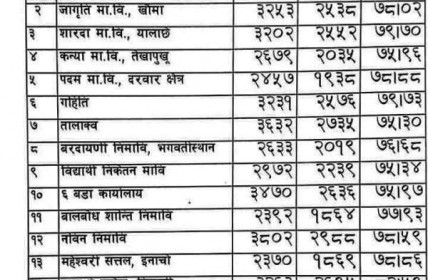 २ जागृति मा.वि., खौमा ३२५३ २५३८ ७८|०२
३ शारदा मा.वि., यालाछेँ ३२०२ २५५२ ७९|७०
४ कन्या मा.वि., तेखापुखू २६७९ २०३५ ७५|९६
५ पदम मा.वि., दरवार क्षेत्र २४५७ १९३८ ७८|८८
६ गाहिति ३२३१ २५७६ ७९|७३
७ तालाक्व ३६३२ २७३५ ७५|३०
८ बरदायणी निमावि, भगवतीस्थान २६३३ २०१९ ७६|६८
९ विद्यार्थी निकेतन मावि २९७२ २२३९ ७५|३४
१० ६ वडा कार्यालाय ३४७० २६३६ ७५|९७
११ बालबोध शान्ति निमावि २३९२ १८६४ ७७|९३
१२ नविन निमावि ३८०२ २९८८ ७८|५९
१३ महेश्वरी सत्तल, इनाचो २३७० १८६९ ७८|८६